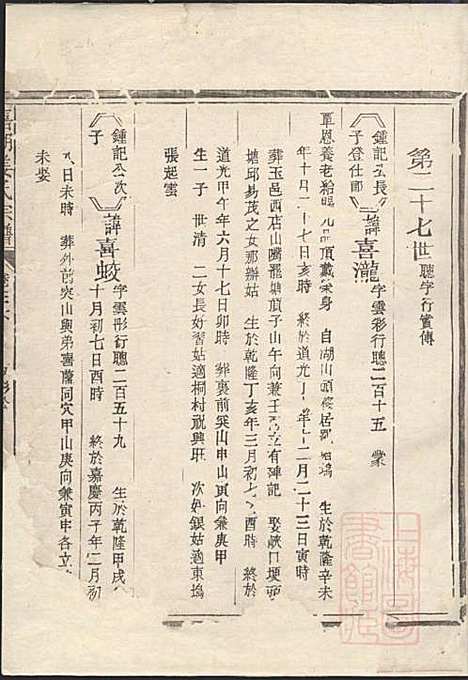 第二十七世聽字行實傳
鍾記公長子登仕郎
諱喜瀧字雲彩行聽二百十五 蒙
覃恩養老給賜九品頂戴榮身 自湖山頭移居 塢 生於乾隆辛未
年十月二十七日亥時 終於道光 年 二月二十三日寅時
葬玉邑西店山嘴 塘頂子山午向兼壬 立有碑記 娶峽口埂
塘邱易茂之女那辦姑 生於乾隆丁亥年三月初七 酉時 終於
道光甲午年六月十七日卯時 葬裏前突山申山寅向兼庚甲
生一子 世清 二女長好習姑適桐村祝興班 次好銀姑適東塢
張起雲
鍾記公次子
諱喜蛟字雲彤行聽二百五十九 生於乾隆甲戌
十月初七日酉時 終於嘉慶丙子年二月初
八日未時 葬外前突山與弟喜 同穴甲山庚向兼寅申各立
未娶
氏宗譜